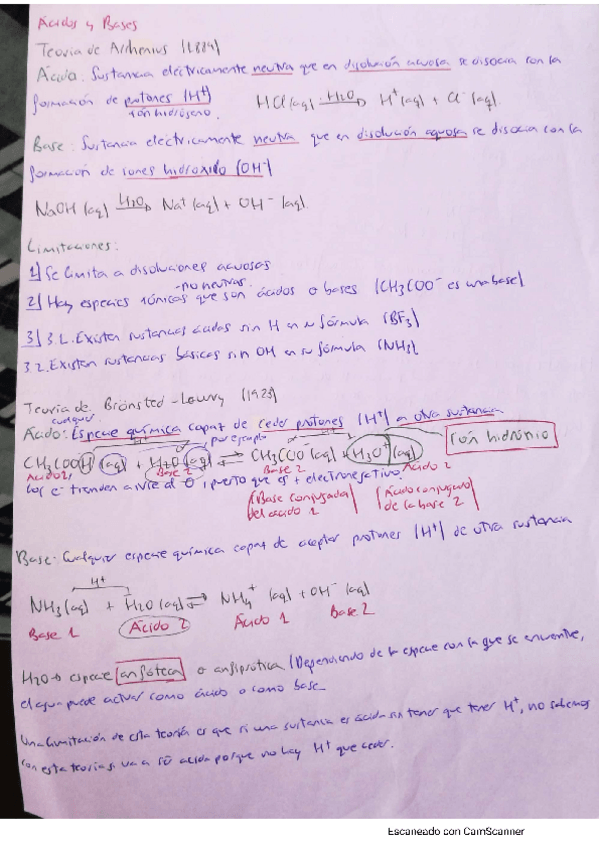 Ácidos y Bases
Teoría de Arrhenius (1884)
Ácido: Sustancia eléctricamente neutra que en disolución acuosa se disocia con la
formación de protones (H+)
ión hidrógeno
HCl (aq) H2O→ H+ (aq) + Cl- (aq)
Base: Sustancia eléctricamente neutra que en disolución acuosa se disocia con la
formación de iones hidróxido (OH-)
NaOH (aq) H2O→ Na+ (aq) + OH- (aq)
Limitaciones:
1) Se limita a disoluciones acuosas
-no neutras-
2) Hay especies iónicas que son ácidos o bases (CH3COO- es una base)
3) 3.1. Existen sustancias ácidas sin H en su fórmula (BF3)
3.2. Existen sustancias básicas sin OH en su fórmula (NH3)
Teoría de Brönsted-Lowry (1923)
cualquier
Ácido: Especie química capaz de ceder protones (H+) a otra sustancia
H+ por ejemplo H+
CH3COOH (aq) + H2O (aq) ⇌ CH3COO (aq) + H3O+ (aq)
ión hidrónio
Ácido 1 Base 2 Base 2 Ácido 2
Los e- tienden a irse al O, puesto que es + electronegativo.
(Base conjugada del ácido 1) (Ácido conjugado de la base 2)
Base: Cualquier especie química capaz de aceptar protones (H+) de otra sustancia
H+
NH3 (aq) + H2O (aq) ⇌ NH4+ (aq) + OH- (aq)
Base 1 Ácido 2 Ácido 1 Base 2
H2O → especie anfótera o anfiprótica (Dependiendo de la especie con la que se encuentre,
el agua puede actuar como ácido o como base.
Una limitación de esta teoría es que si una sustancia es ácida sin tener que tener H+, no sabemos
con esta teoría si va a ser ácida porque no hay H+ que ceder.
Escaneado con CamScanner